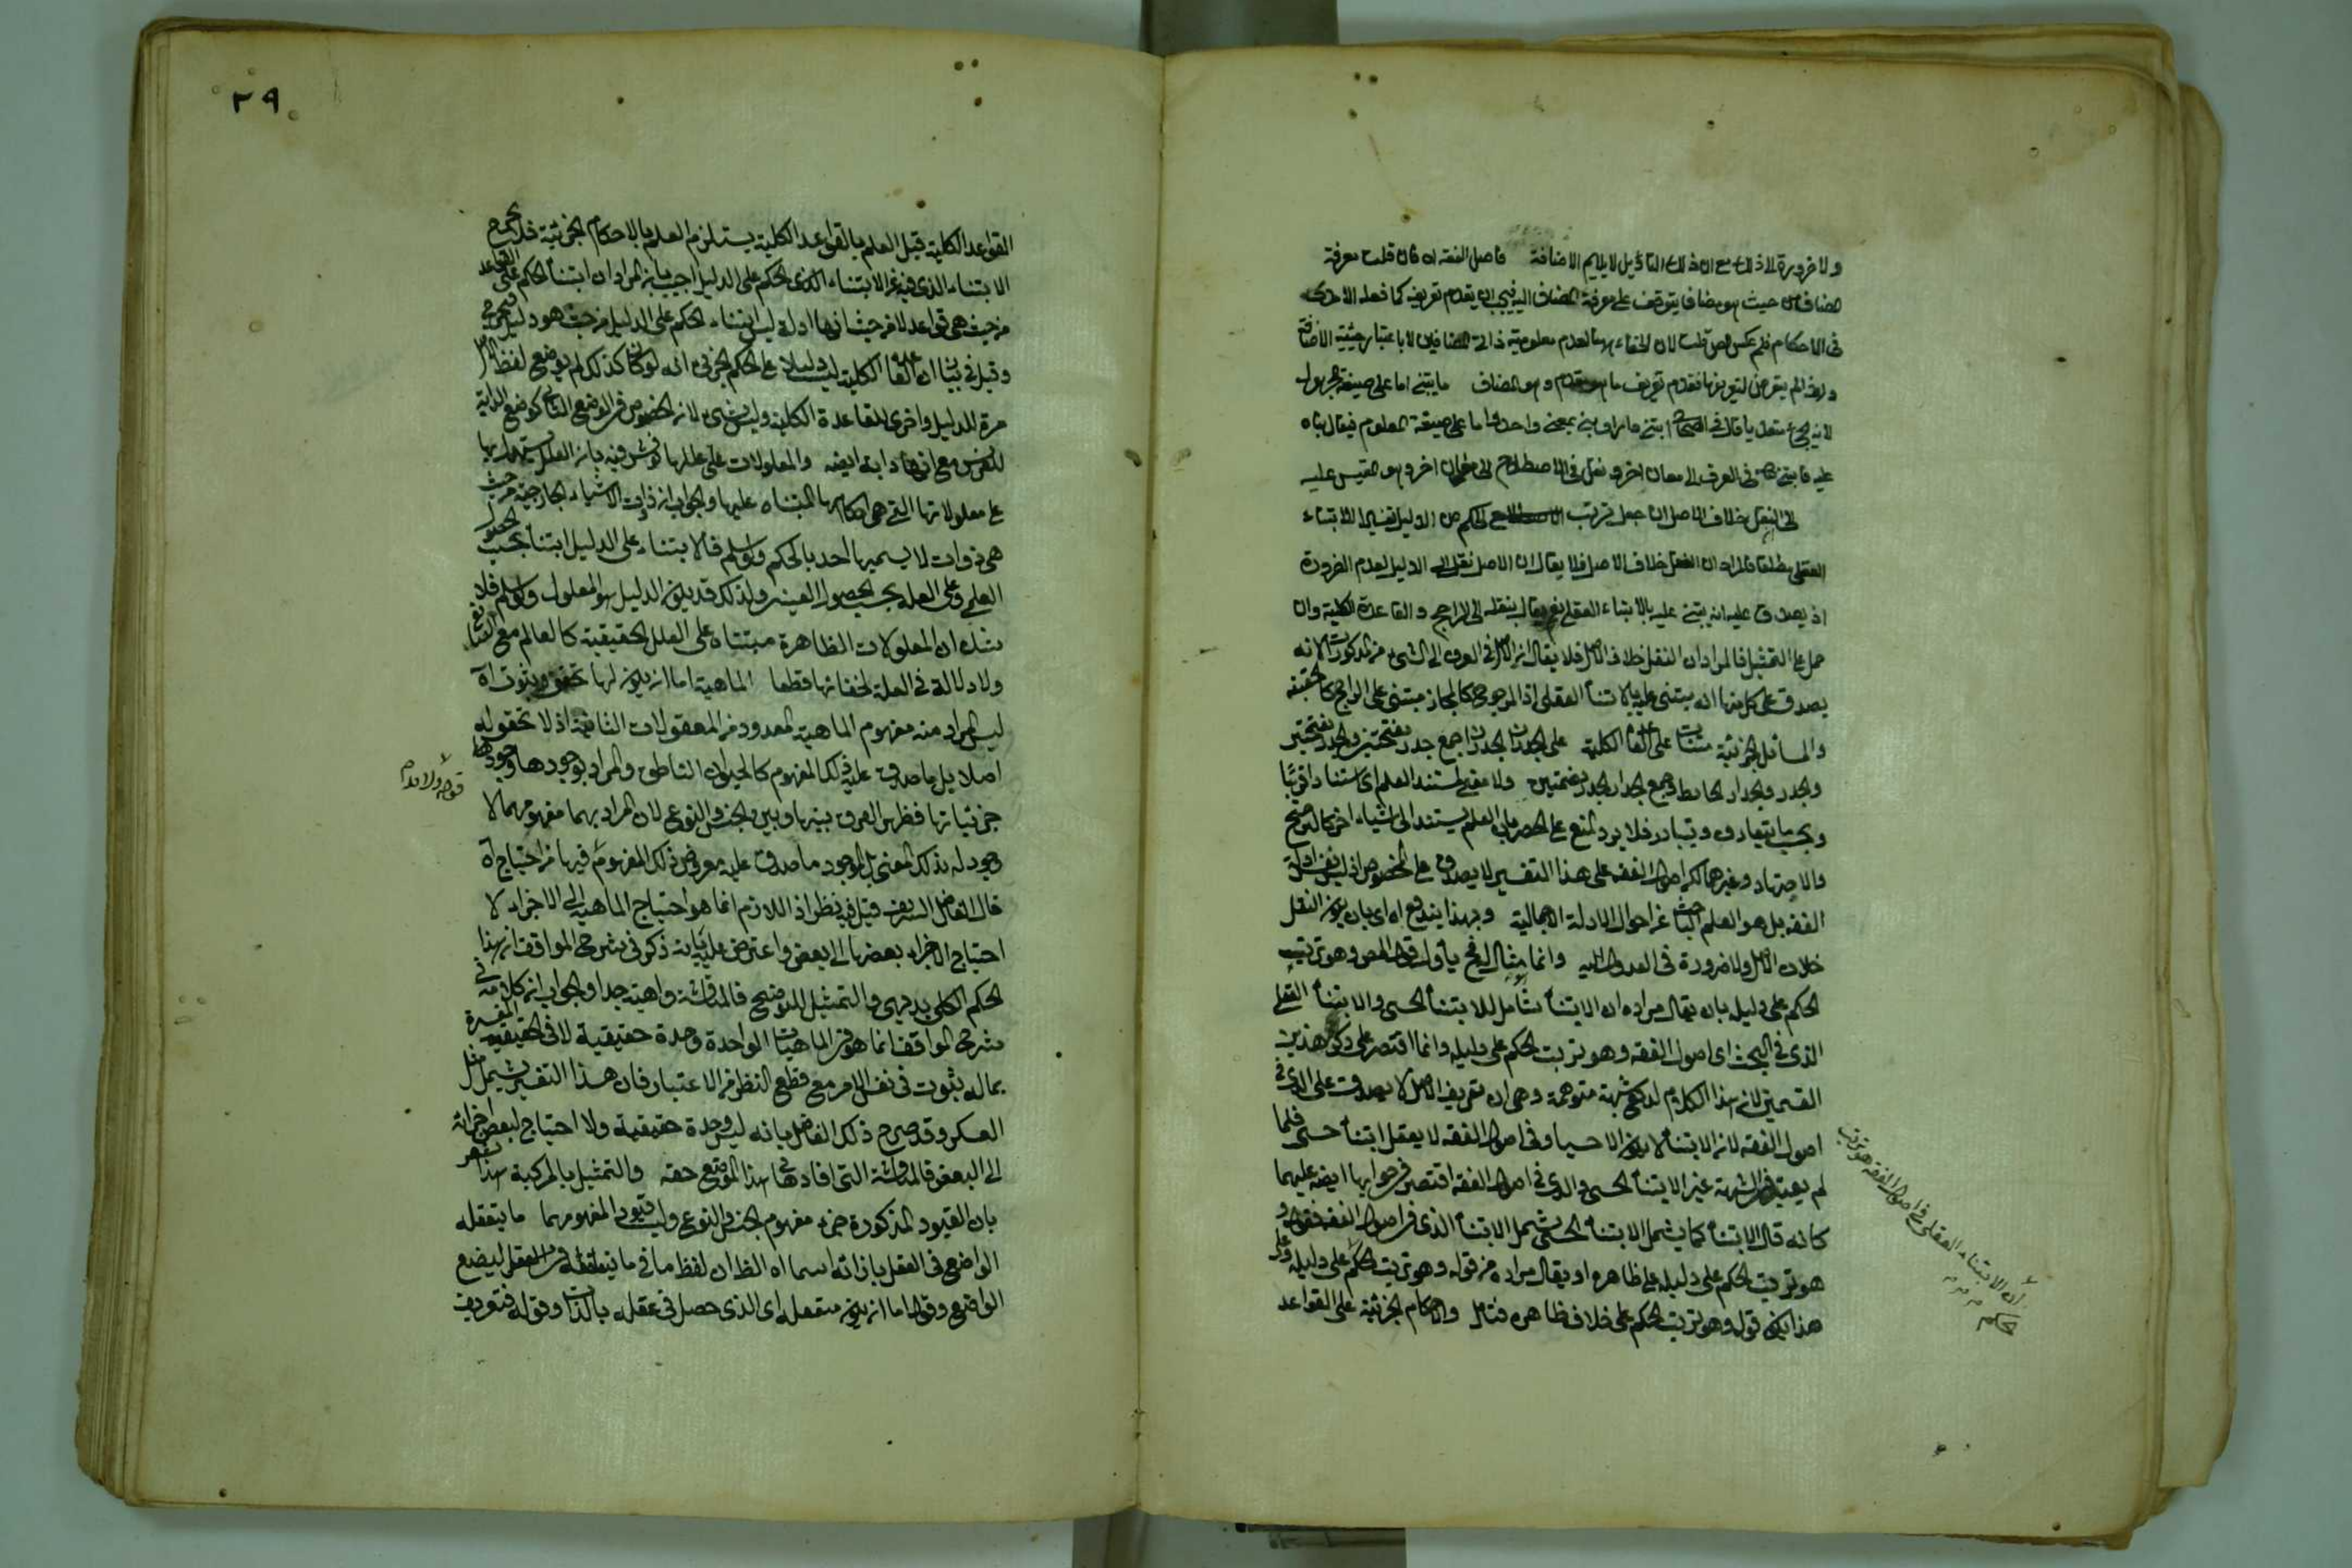 ولا ضرورة الا ذلك مع ان ذلك التأويل لا يلايم الاضافة فاصل الفقه اه فان قلت معرفة
المضاف من حيث هو مضاف يتوقف على معرفة المضاف اليه فيجب ان يقدم تعريفه كما فعله الآمدى
فى الاحكام فلم عكس المص قلت لان الخفاء بهما لعدم معلومية ذات المضافين لا باعتبار حيثية الاضافة
ولذا لم يتعرض لتعريفها فقدم تعريف ما هو مقدم وهو المضاف ما يبتنى اما على صيغة المجهول
لانه يجئ متعديا قال فى الصحاح ابتنى دارا وبنى بمعنى واحد واما على صيغة المعلوم فيقال بناه
عليه فابتنى
الى النقل خلاف الاصل اذا جعل ترتب الحكم من الدليل تفسيرا للابتناء
العقلى مطلقا فالمراد ان النقل خلاف الاصل فلا يقال ان الاصل نقل الى الدليل لعدم الضرورة
اذ يصدق عليه انه يبتنى عليه بالابتناء العقلى والقاعدة الكلية وان
حمل على التمثيل فالمراد ان النقل خلاف الاصل فلا يقال ان الاصل فى العرف الى الشئ من المذكورات لانه
يصدق على كل منها انه مبتنى عليه بالابتناء العقلى اذ المرجوح كالمجاز مبتنى على الراجح كالحقيقة
والمسائل الجزئية مبتنيات على القاعدة الكلية على الجدران الجدران جمع جدر بفتحتين والجدر بفتحتين
والجدر والجدار الحائط وجمع الجدار الجدر بضمتين ولا معنى لمستند العلم اى استنادا قريبا
وبحسب ما يتعارف ويتبادر فلا يرد المنع على الحصر بان العلم يستند الى اشياء اخر كالترجيح
والاجتهاد وغيرهما لكن اصول الفقه على هذا التفسير لا يصدق على الخصوص اذ ليس نفس ادلة
الفقه بل هو العلم الباحث عن احوال الادلة الاجمالية وبهذا يندفع اه اى بان يكون النقل
خلاف الاصل ولا ضرورة فى العدول اليه وانما مثال الخ يأول قول المص وهو ترتب
الحكم على دليله بان يقال مراده ان الابتناء شامل للابتناء الحسى والابتناء العقلى
الذى فى البحث اى اصول الفقه وهو ترتب الحكم على دليله وانما اقتصر على ذكر هذين
القسمين لانه هذا الكلام لدفع شبهة متوهمة وهى ان تعريف الاصل لا يصدق على الذى فى
اصول الفقه لان الابتناء لا يكون الا حسيا وفى اصول الفقه لا يعقل ابتناء حسى فلما
لم يعتبر فى الشبهة غير الابتناء الحسى والذى فى اصول الفقه اقتصر فى جوابها ايضا عليهما
كانه قال الابتناء كما يشمل الابتناء الحسى يشمل الابتناء الذى فى اصول الفقه فقوله و
هو ترتب الحكم على دليله على ظاهره او يقال مراده من قوله وهو ترتب الحكم على دليله وعلى
هذا يكون قوله وهو ترتب الحكم على خلاف ظاهره فتأمل والاحكام الجزئية على القواعد
اى الابتناء العقلى فى اصول الفقه هو ترتب
حكم
٢٩
القواعد الكلية قيل العلم بالقواعد الكلية يستلزم العلم بالاحكام الجزئية فلم يخرج
الابتناء الذى فيه عن الابتناء الذى الحكم على الدليل اجيب بان المراد ان ابتناء الحكم على القواعد
من حيث هى قواعد لا من حيث انها ادلة ليس ابتناء الحكم على الدليل من حيث هو دليل
وقيل فى بيان ان القاعدة الكلية ليست دليلا على الحكم الجزئى انه لو كان كذلك لم يوضع لفظ
مرة للدليل واخرى للقاعدة الكلية وليس بشئ لانه الخصوص فى الوضع الثانى كوضع الدابة
للفرس مع انها دابة ايضا والمعلولات على عللها نوقش فيه بان العلل يستدل بها
على معلولاتها التى هى احكامها المبتناة عليها والجواب ان ذوات الاشياء الخارجية من حيث
هى ذوات لا يسميها احد بالحكم ولو سلم فالابتناء على الدليل ابتناء بحسب الحصول
العلمى وعلى العلة بحسب الحصول العينى ولذلك قد يكون الدليل هو المعلول ولو سلم فلا
شك ان المعلولات الظاهرة مبتناة على العلل الحقيقية كالعالم مع الصانع
ولا دلالة فى العلة لخفائها قطعا الماهية اما ان يكون لها تحقق وثبوت اه
ليس المراد منه مفهوم الماهية المعدود من المعقولات الثانية اذ لا تحقق له
اصلا بل ما صدق عليه ذلك المفهوم كالحيوان الناطق والمراد بوجودها وجود
جزئياتها فظهر الفرق بينها وبين الجنس والنوع لان المراد بهما مفهومهما لا
وجود له بذلك المعنى بل الموجود ما صدق عليه معروض ذلك المفهوم فيها من احتياج اه
قال الفاضل الشريف قيل فيه نظر اذ اللازم انما هو احتياج الماهية الى الاجزاء لا
احتياج الاجزاء بعضها الى بعض واعترض عليه بانه ذكر فى شرح المواقف ان هذا
الحكم الكلى بديهى والتمثيل للتوضيح فالمناقشة واهية جدا والجواب ان كلامه فى
شرح المواقف انما هو فى الماهيات الواحدة وحدة حقيقية لا فى الحقيقية المفسرة
بماله ثبوت فى نفس الامر مع قطع النظر عن الاعتبار فان هذا التفسير يشمل مثل
العسكر وقد صرح ذلك الفاضل بانه ليس وحدة حقيقية ولا احتياج لبعض اجزائه
الى البعض فالمناقشة التى افادها فى هذا الموضع حقه والتمثيل بالمركبة هذا
بان القيود المذكورة جزء مفهوم الجنس والنوع وليست قيود المفهومهما ما يتعقله
الواضع فى العقل بازائه اسما اه الظ ان لفظ ما فى ما يتعقله من العقل ليضع
الواضع وقوله اما ان يكون متعقله اى الذى حصل فى عقله بالذات وقوله فتعريف